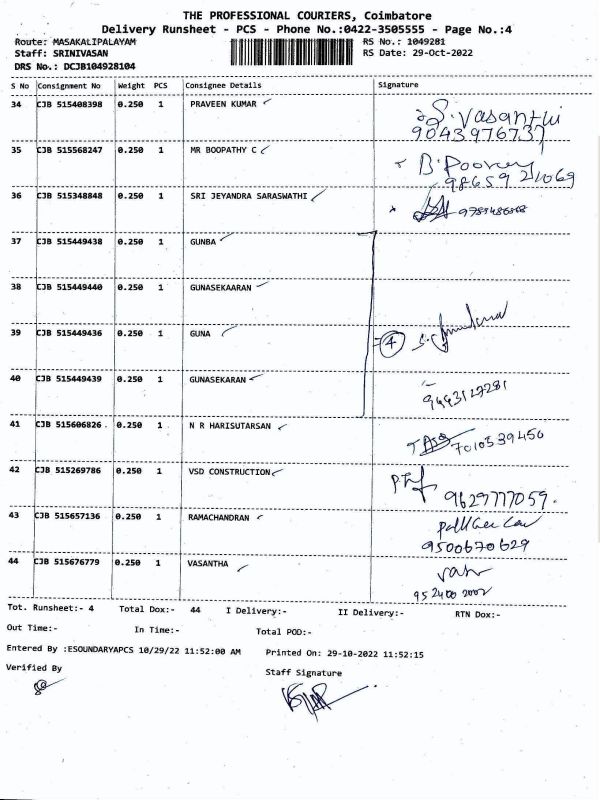 THE PROFESSIONAL COURIERS, Coimbatore
Delivery Runsheet - PCS - Phone No.:0422-3505555 - Page No.:4
Route: MASAKALIPALAYAM RS No.: 1049281
Staff: SRINIVASAN RS Date: 29-Oct-2022
DRS No.: DCJB104928104
S No Consignment No Weight PCS Consignee Details Signature
34 CJB 515408398 0.250 1 PRAVEEN KUMAR S.Vasanthi
9043976737
35 CJB 515568247 0.250 1 MR BOOPATHY C
98659 21069
36 CJB 515348848 0.250 1 SRI JEYANDRA SARASWATHI
37 CJB 515449438 0.250 1 GUNBA
38 CJB 515449440 0.250 1 GUNASEKAARAN
39 CJB 515449436 0.250 1 GUNA 4
40 CJB 515449439 0.250 1 GUNASEKARAN
9443127281
41 CJB 515606826 0.250 1 N R HARISUTARSAN 7010539450
42 CJB 515269786 0.250 1 VSD CONSTRUCTION
9629777059.
43 CJB 515657136 0.250 1 RAMACHANDRAN
9500670629
44 CJB 515676779 0.250 1 VASANTHA
Tot. Runsheet:- 4 Total Dox:- 44 I Delivery:- II Delivery:- RTN Dox:-
Out Time:- In Time:- Total POD:-
Entered By :ESOUNDARYAPCS 10/29/22 11:52:00 AM Printed On: 29-10-2022 11:52:15
Verified By Staff Signature